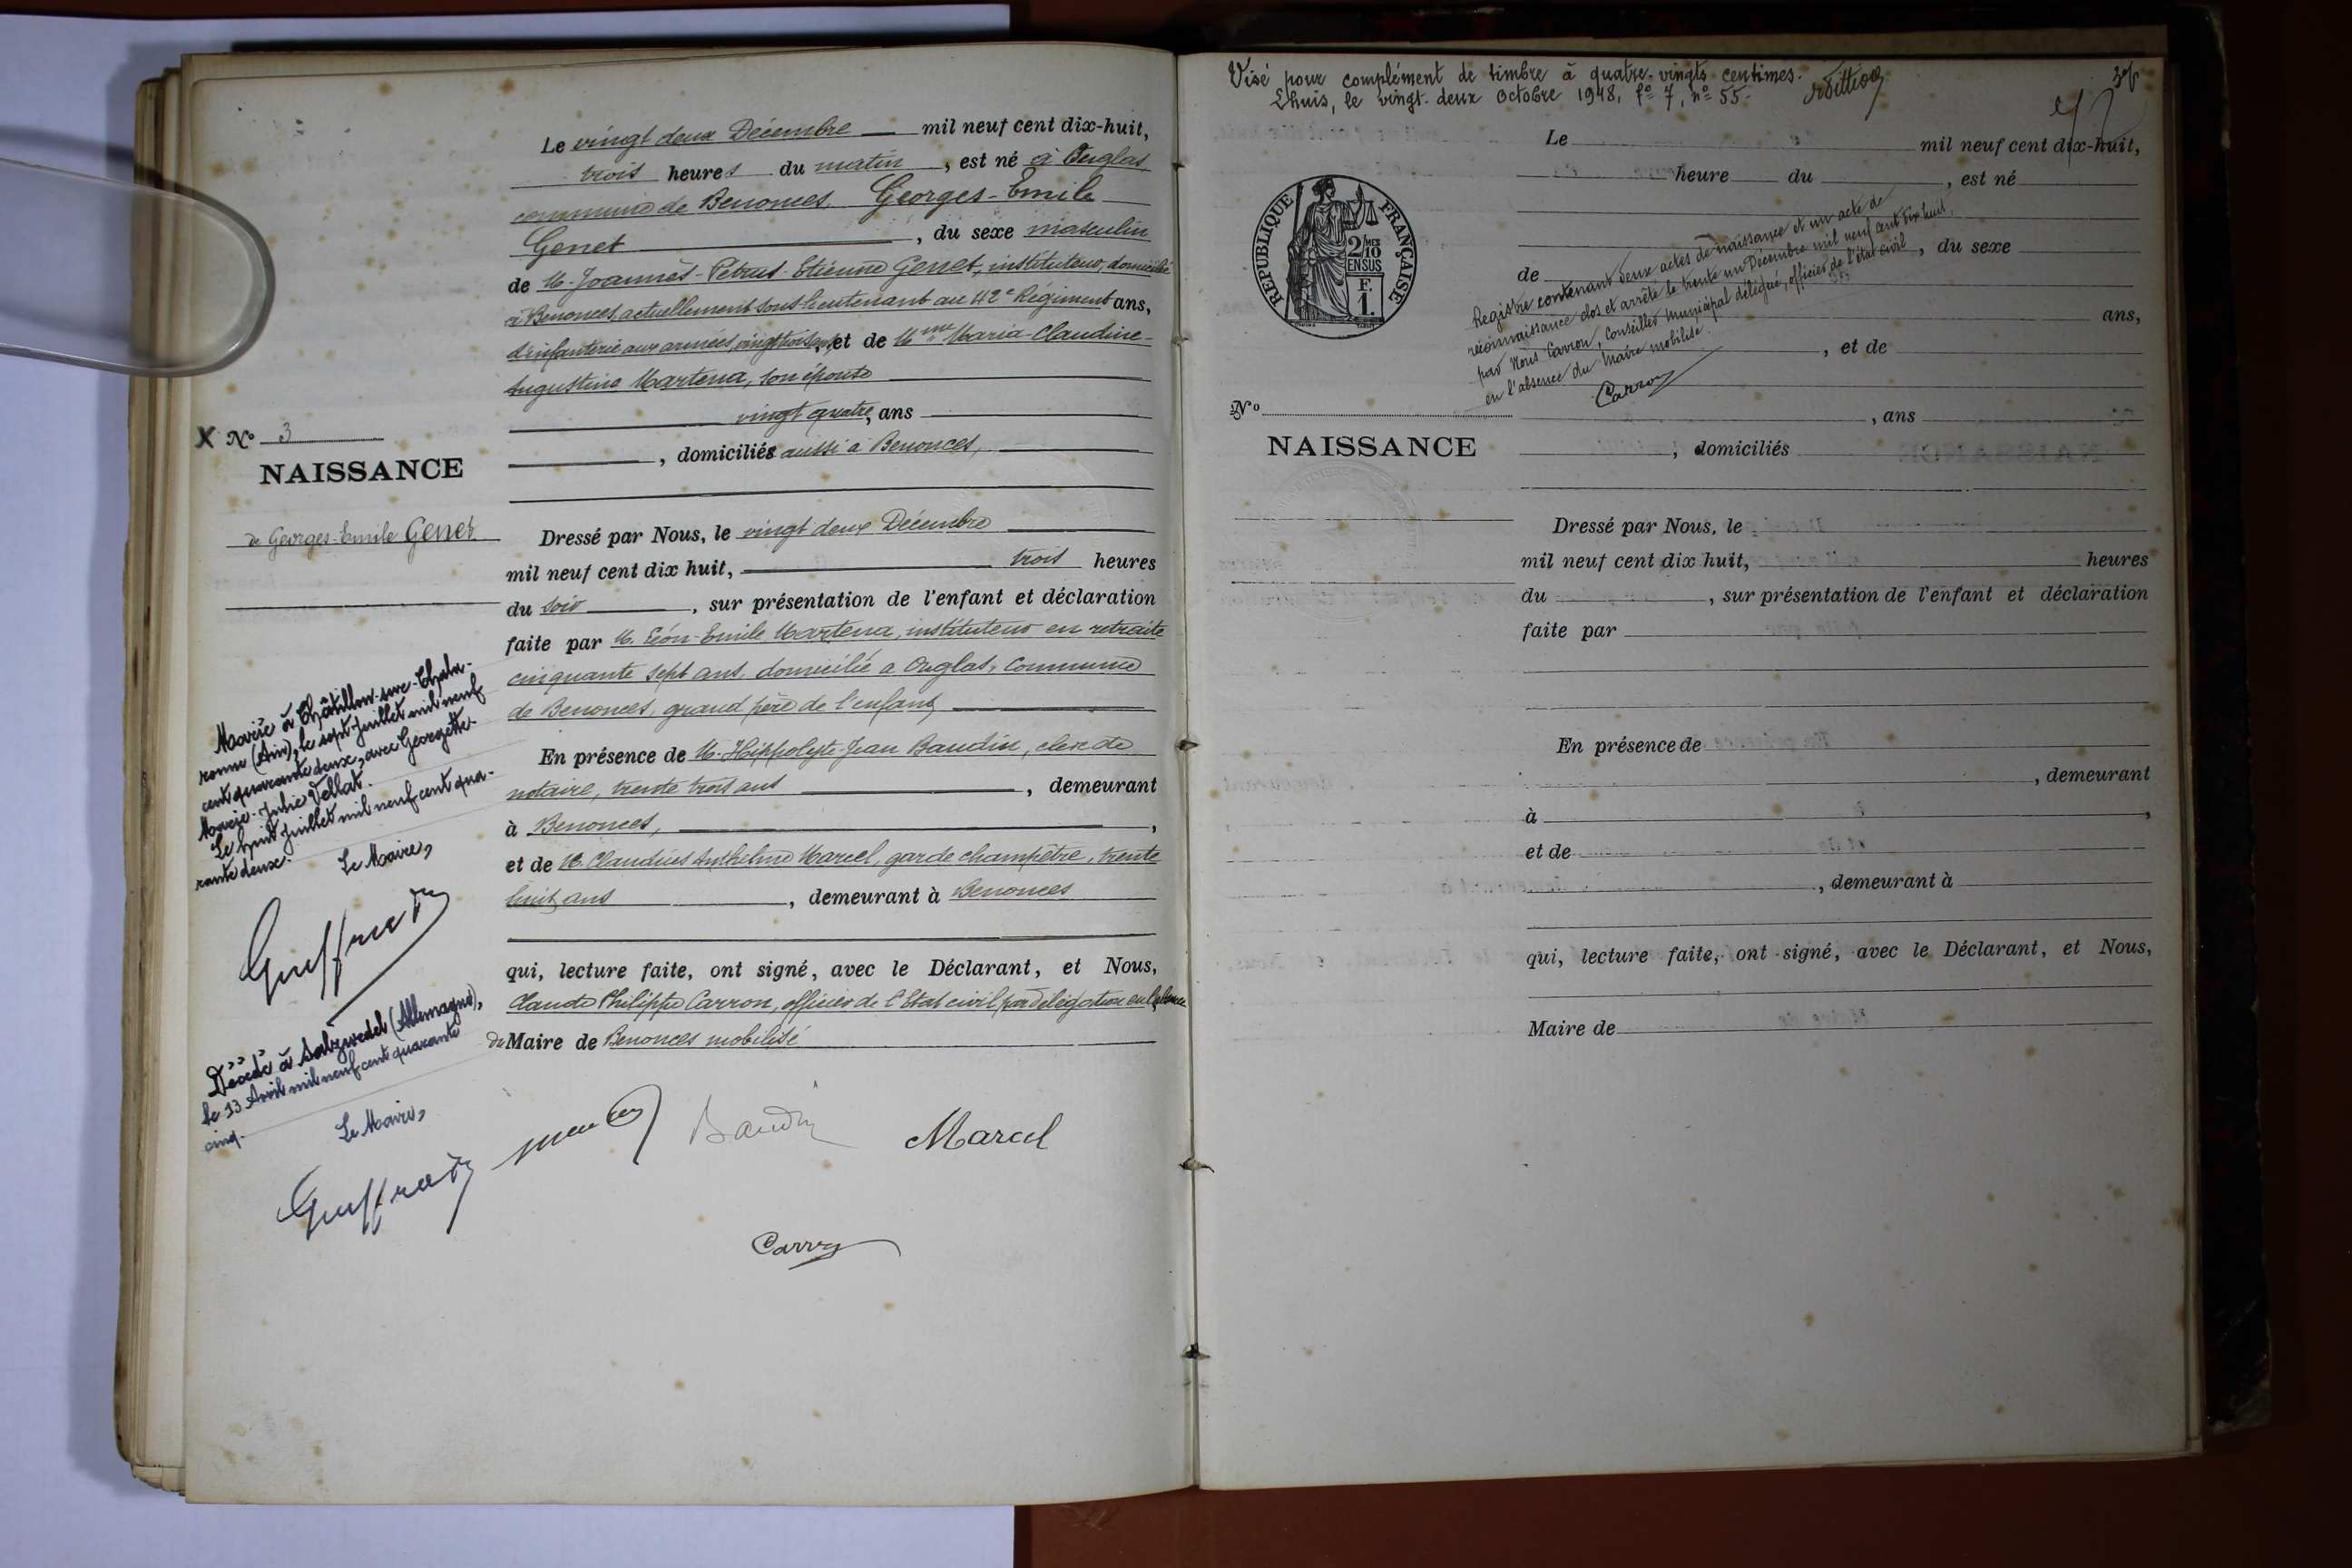 Le vingt deux Décembre mil neuf cent dix-huit,
trois heures du matin, est né à Onglas
commune de Benonces, Georges-Emile
Genet, du sexe masculin
de M. Joannès-Pétrus-Etienne Genet, instituteur, domicilié
à Benonces, actuellement sous-lieutenant au 42e Régiment ans,
d'infanterie aux armées, vingt huit ans, et de Mme Maria-Claudine-
Augustine Martena, son épouse
vingt quatre, ans
, domiciliés aussi à Benonces,
X No 3
NAISSANCE
de Georges-Emile Genet
Dressé par Nous, le vingt deux Décembre
mil neuf cent dix huit, trois heures
du soir, sur présentation de l'enfant et déclaration
faite par M. Léon-Emile Martena, instituteur en retraite
cinquante sept ans, domicilié a Onglas, Commune
de Benonces, grand père de l'enfant
En présence de M. Hippolyte-Jean Baudin, clerc de
notaire, trente trois ans, demeurant
à Benonces,
et de M. Claudius Anthelme Marcel, garde champêtre, trente
huit ans, demeurant à Benonces
qui, lecture faite, ont signé, avec le Déclarant, et Nous,
Claude Philippe Carron, officier de l'Etat civil par délégation en l'absence
du Maire de Benonces mobilisé
Baudin
Marcel
Carron
Marié à Châtillon-sur-Chala-
ronne (Ain), le sept Juillet mil neuf
cent quarante deux, avec Georgette-
Marie-Julie Vellat.
Le huit Juillet mil neuf cent qua-
rante deux.
Le Maire,
Décédé à Salzwedel (Allemagne),
le 13 Avril mil neuf cent quarante
cinq.
Le Maire,
Visé pour complément de timbre à quatre-vingts centimes.
Lhuis, le vingt-deux Octobre 1918, fo 7, no 55.
REPUBLIQUE FRANÇAISE
2/10
MES
EN SUS
F.
1.
Le mil neuf cent dix-huit,
heure du , est né
, du sexe
de
ans,
, et de
, ans
, domiciliés
Registre contenant deux actes de naissance et un acte de
reconnaissance clos et arrêté le trente un Décembre mil neuf cent dix huit,
par Nous Carron, Conseiller municipal délégué, officier de l'état civil
en l'absence du Maire mobilisé.
Carron
No
NAISSANCE
Dressé par Nous, le
mil neuf cent dix huit, heures
du , sur présentation de l'enfant et déclaration
faite par
En présence de
, demeurant
à ,
et de
, demeurant à
qui, lecture faite, ont signé, avec le Déclarant, et Nous,
Maire de